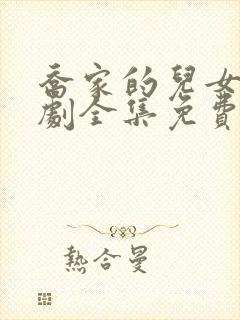 喬家的兒女
劇全集免費
熱合曼